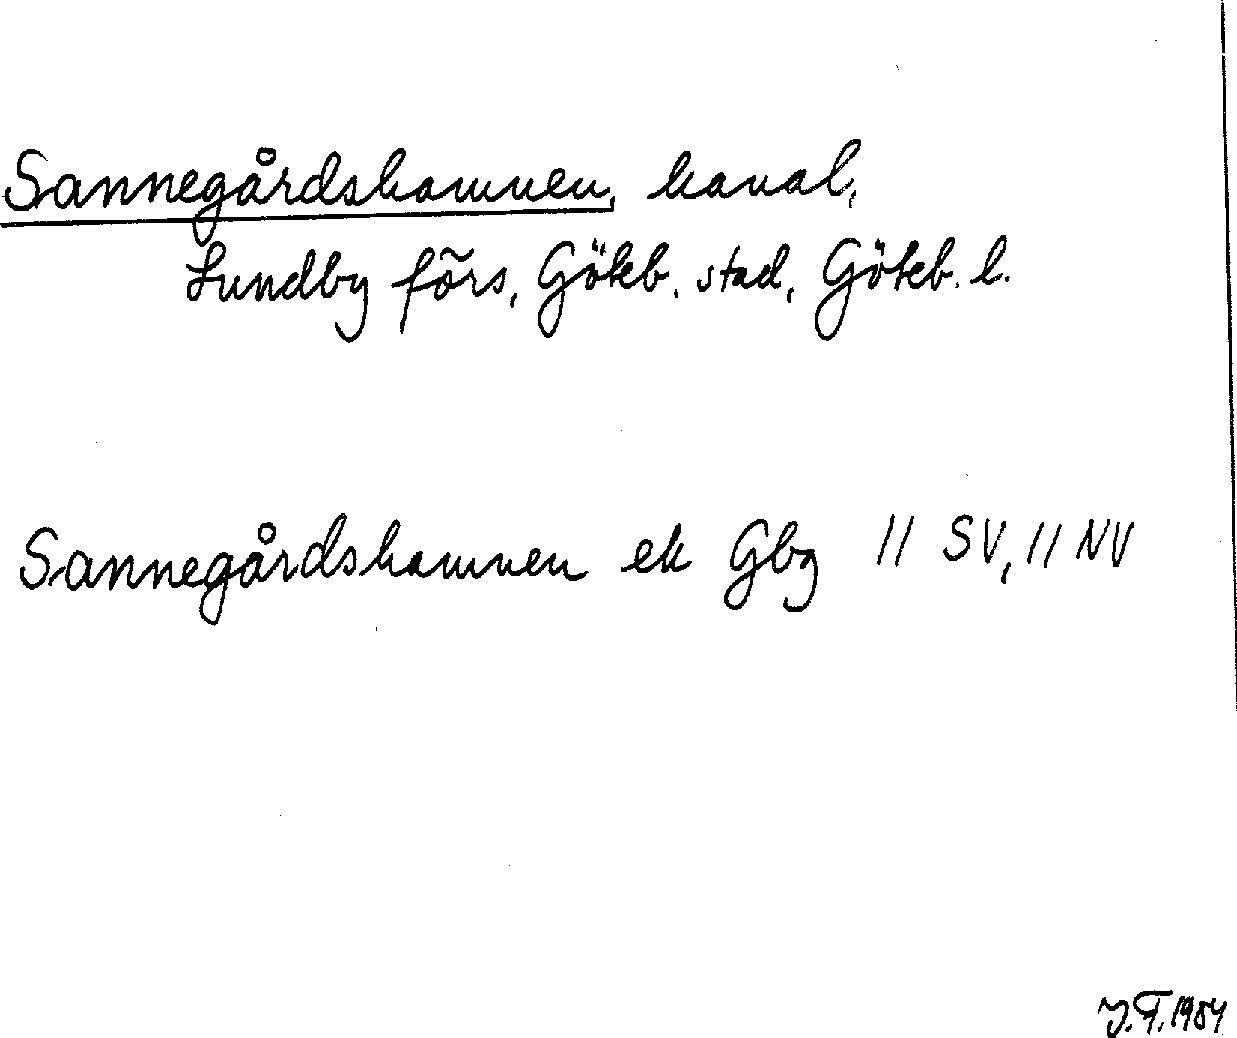 Sannegårdshamnen, kanal,
Lundby förs, Göteb. stad, Göteb. l.
Sannegårdshamnen ek Gbg 11 SV, 11 NV
J.T. 1984